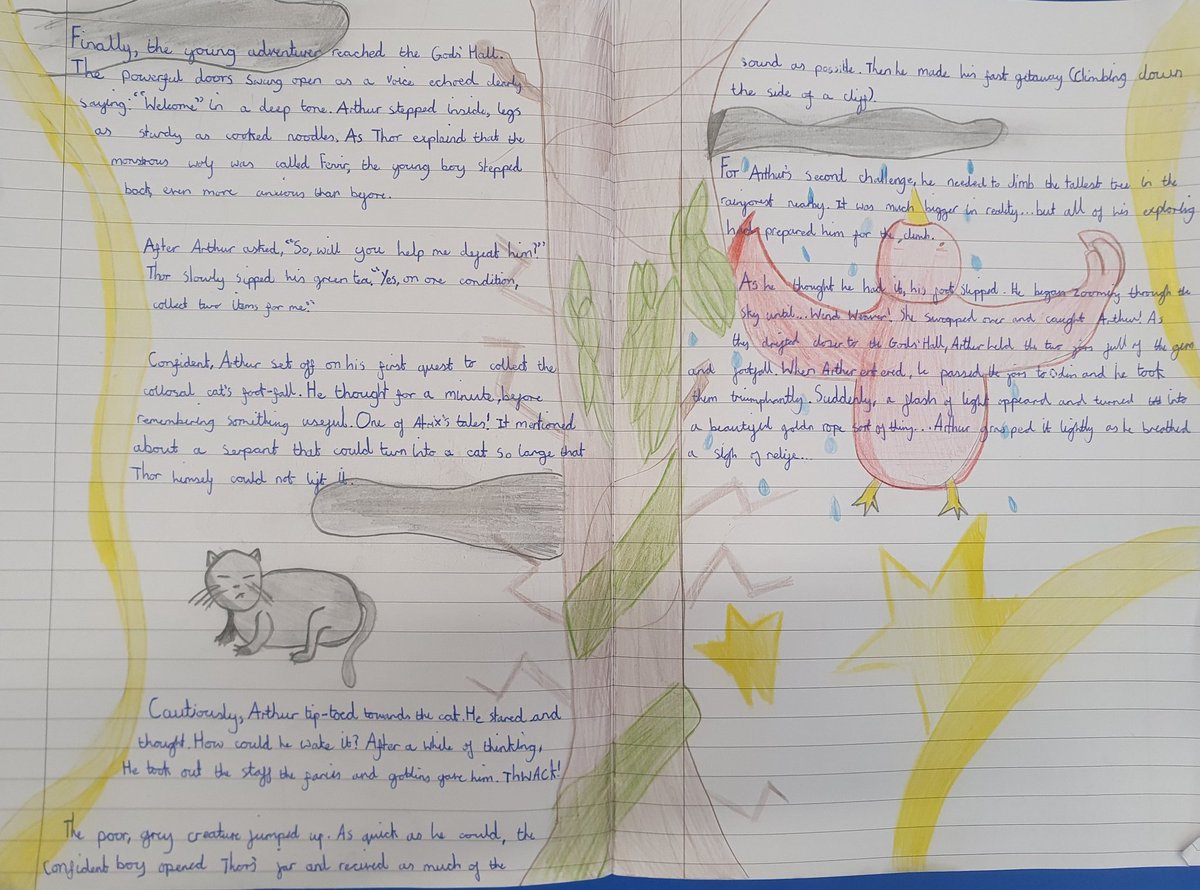 Finally, the young adventurer reached the Gods' Hall.
The powerful doors swung open as a voice echoed clearly
saying: "Welcome" in a deep tone. Arthur stepped inside, legs
as sturdy as cooked noodles. As Thor explaind that the
monstrous wolf was called Fenrir, the young boy stepped
back, even more anxious than before.
After Arthur asked, "So, will you help me defeat him?"
Thor slowly sipped his green tea, "Yes, on one condition,
collect two items, for me."
Confident, Arthur set off on his first quest to collect the
collosal cat's foot-fall. He thought for a minute, before
remembering something useful. One of Atrix's tales! It mentioned
about a serpant that could turn into a cat so large that
Thor himself could not lift it.
Cautiously, Arthur tip-toed towards the cat. He stared and
thought. How could he wake it? After a while of thinking,
He took out the staff the faries and goblins gave him. THWACK!
The poor, grey creature jumped up. As quick as he could, the
confident boy opened Thor's jar and recived as much of the
sound as possible. Then he made his fast getaway (Climbing down
the side of a cliff).
For Arthur's second challenge, he needed to climb the tallest tree in the
rainforest nearby. It was much bigger in reality... but all of his exploring
had prepared him for the climb.
As he thought he had it, his foot slipped. He began zooming through the
sky until... Wind Weaver! She swooped over and caught Arthur! As
they drifted closer to the Gods' Hall, Arthur held the two jars full of the
and footfall. When Arthur entered, he passed the jars to Odin and he took
them triumphantly. Suddenly, a flash of light appeard and turned into
a beautyful goldn rope sort of thing... Arthur grasped it lightly as he breathed
a sigh of relife...